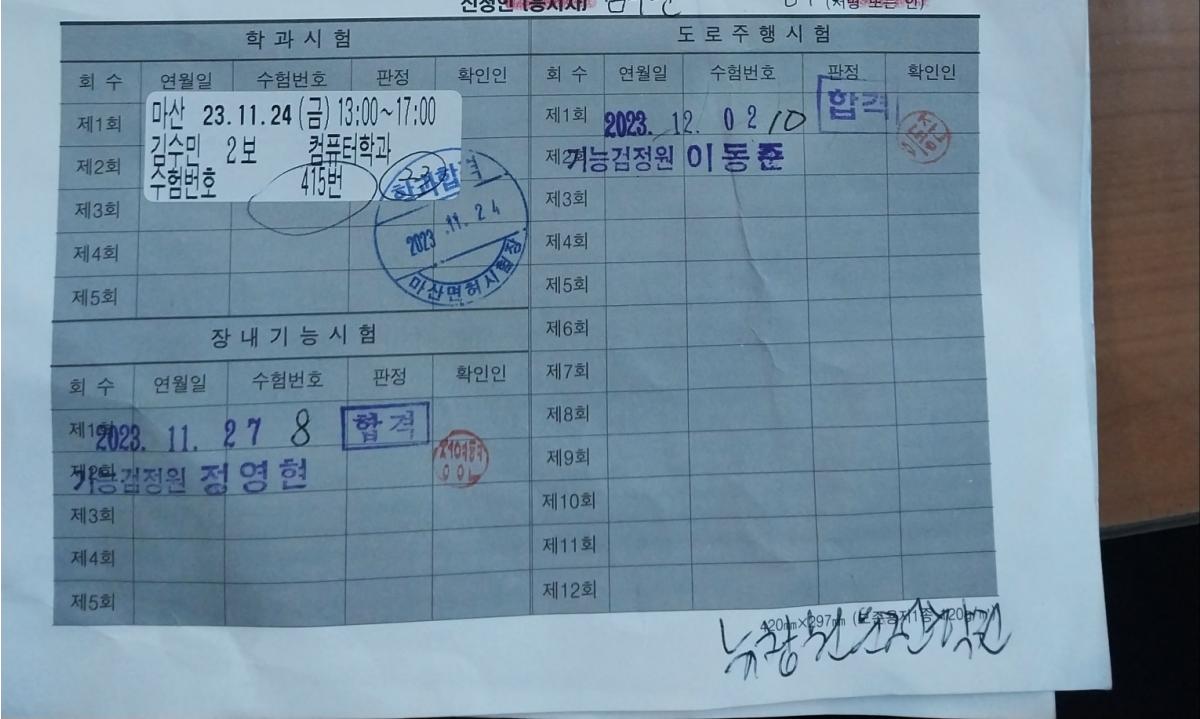 신청인 (응시자)
(서명 또는 인)
학과시험
회 수 연월일 수험번호 판정 확인인
제1회
마산 23.11.24(금) 13:00~17:00
제2회
김수민 2보 컴퓨터학과
수험번호 415번
제3회
제4회
제5회
학과합격
2023 .11. 24
마산면허시험장
장내기능시험
회 수 연월일 수험번호 판정 확인인
제1회 2023. 11. 27 8 합격
제2회 기능검정원 정영현
제3회
제4회
제5회
도로주행시험
회 수 연월일 수험번호 판정 확인인
제1회 2023. 12. 02 10 합격
제2회 기능검정원 이동준
제3회
제4회
제5회
제6회
제7회
제8회
제9회
제10회
제11회
제12회
420㎜×297㎜